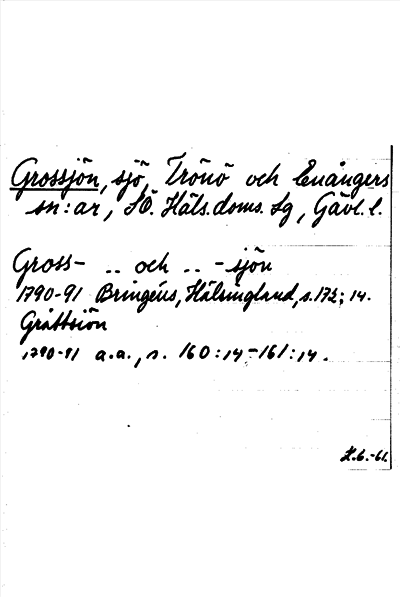 Grossjön, sjö, Trönö och Enångers
sn:ar, SÖ. Häls. doms. sg, Gävl. l.
Gross- .. och .. -sjön
1790-91 Bringéus, Hälsingland, s. 172; 14.
Gråttsiön
1790-91 a.a., s. 160:14-161:14.
H.G.-61.